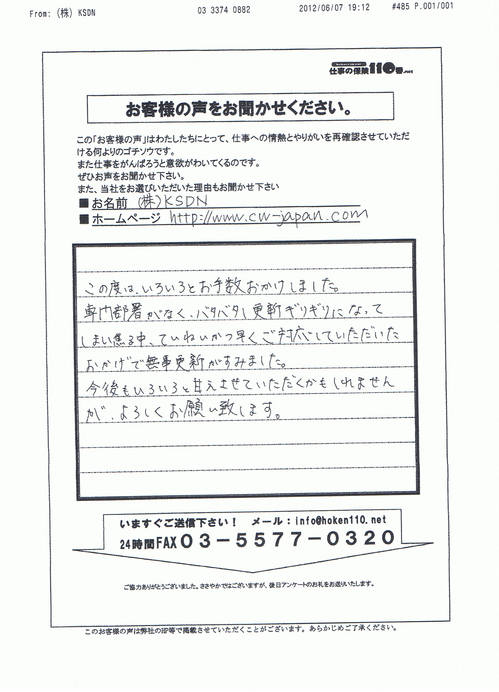 From: (株) KSDN 03 3374 0882 2012/06/07 19:12 #485 P.001/001
仕事の保険110番.net
お客様の声をお聞かせください。
この「お客様の声」はわたしたちにとって、仕事への情熱とやりがいを再確認させていただ
ける何よりのゴチソウです。
また仕事をがんばろうと意欲がわいてくるのです。
ぜひお声をお聞かせ下さい。
また、当社をお選びいただいた理由もお聞かせ下さい
■お名前 (株)KSDN
■ホームページ http://www.cw-japan.com
この度は、いろいろとお手数おかけしました。
専門部署がなく、バタバタし更新ギリギリになって
しまい焦る中、ていねいかつ早くご対応していただいた
おかげで無事更新がすみました。
今後もいろいろと甘えさせていただくかもしれません
が、よろしくお願い致します。
いますぐご送信下さい! メール:info@hoken110.net
24時間FAX03-5577-0320
ご協力ありがとうございました。ささやかではございますが、後日アンケートのお礼をお送りいたします。
このお客様の声は弊社のHP等で掲載させていただくことがございます。あらかじめご了承ください。